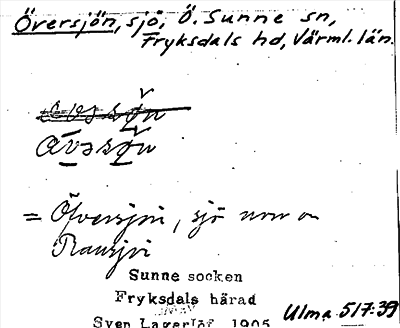 Översjön, sjö, Ö. Sunne sn,
Fryksdals hd, Värml. län.
= Öfversjön, sjö norr om
Sunne socken
Fryksdals härad
Sven Lagerlöf 1905
Ulma 517:39